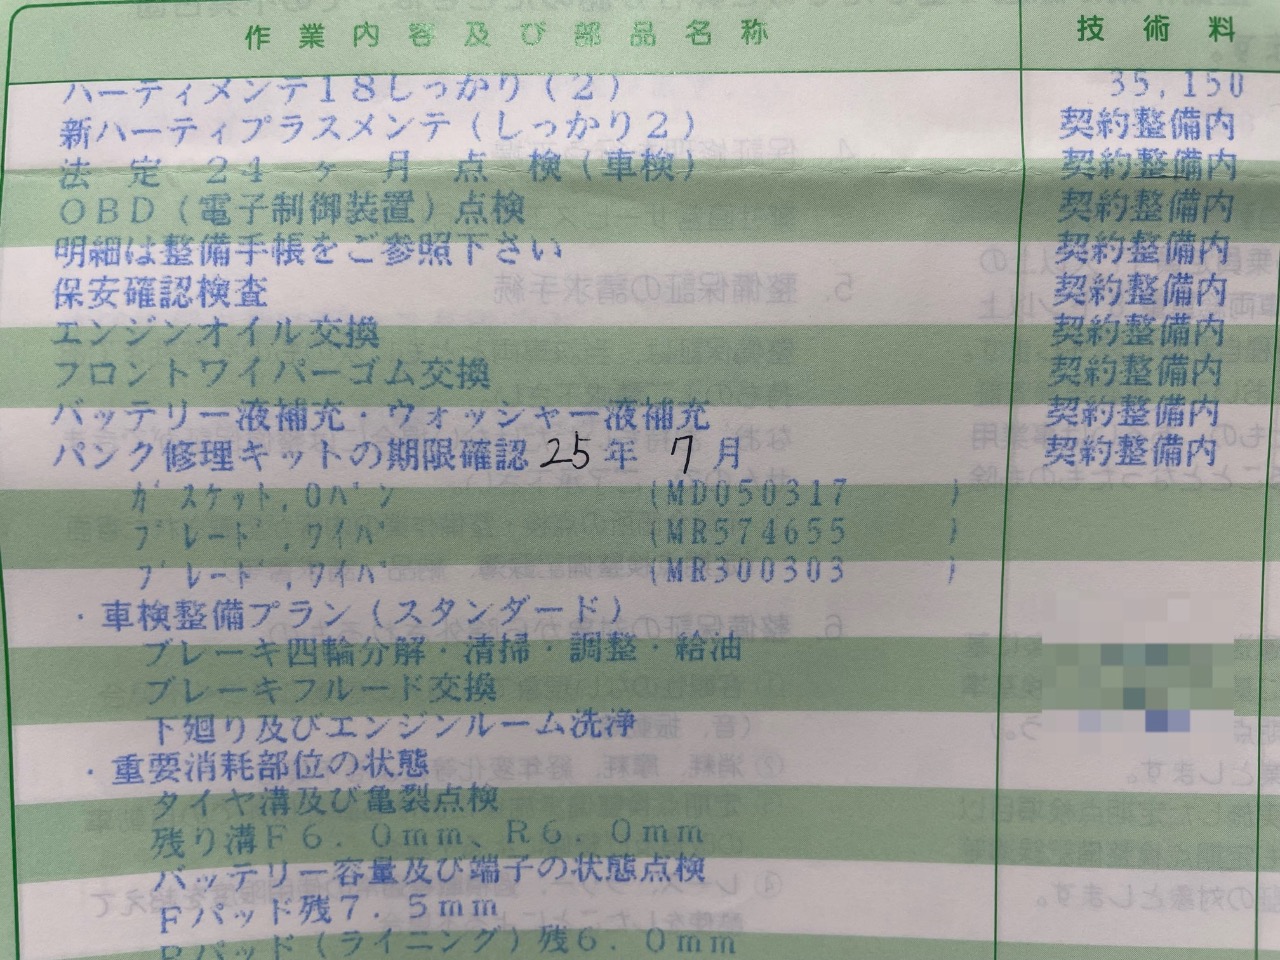 作業内容及び部品名称 技術料
ハーティメンテ18しっかり(2) 35,150
新ハーティプラスメンテ(しっかり2) 契約整備内
法定24ヶ月点検(車検) 契約整備内
OBD(電子制御装置)点検 契約整備内
明細は整備手帳をご参照下さい 契約整備内
保安確認検査 契約整備内
エンジンオイル交換 契約整備内
フロントワイパーゴム交換 契約整備内
バッテリー液補充・ウォッシャー液補充 契約整備内
パンク修理キットの期限確認 25年 7月 契約整備内
ガスケット,Oパン (MD050317 )
ブレード,ワイパ (MR574655 )
ブレード,ワイパ (MR300303 )
・車検整備プラン(スタンダード)
ブレーキ四輪分解・清掃・調整・給油
ブレーキフルード交換
下廻り及びエンジンルーム洗浄
・重要消耗部位の状態
タイヤ溝及び亀裂点検
残り溝F6.0mm、R6.0mm
バッテリー容量及び端子の状態点検
Fパッド残7.5mm
Rパッド(ライニング)残6.0mm